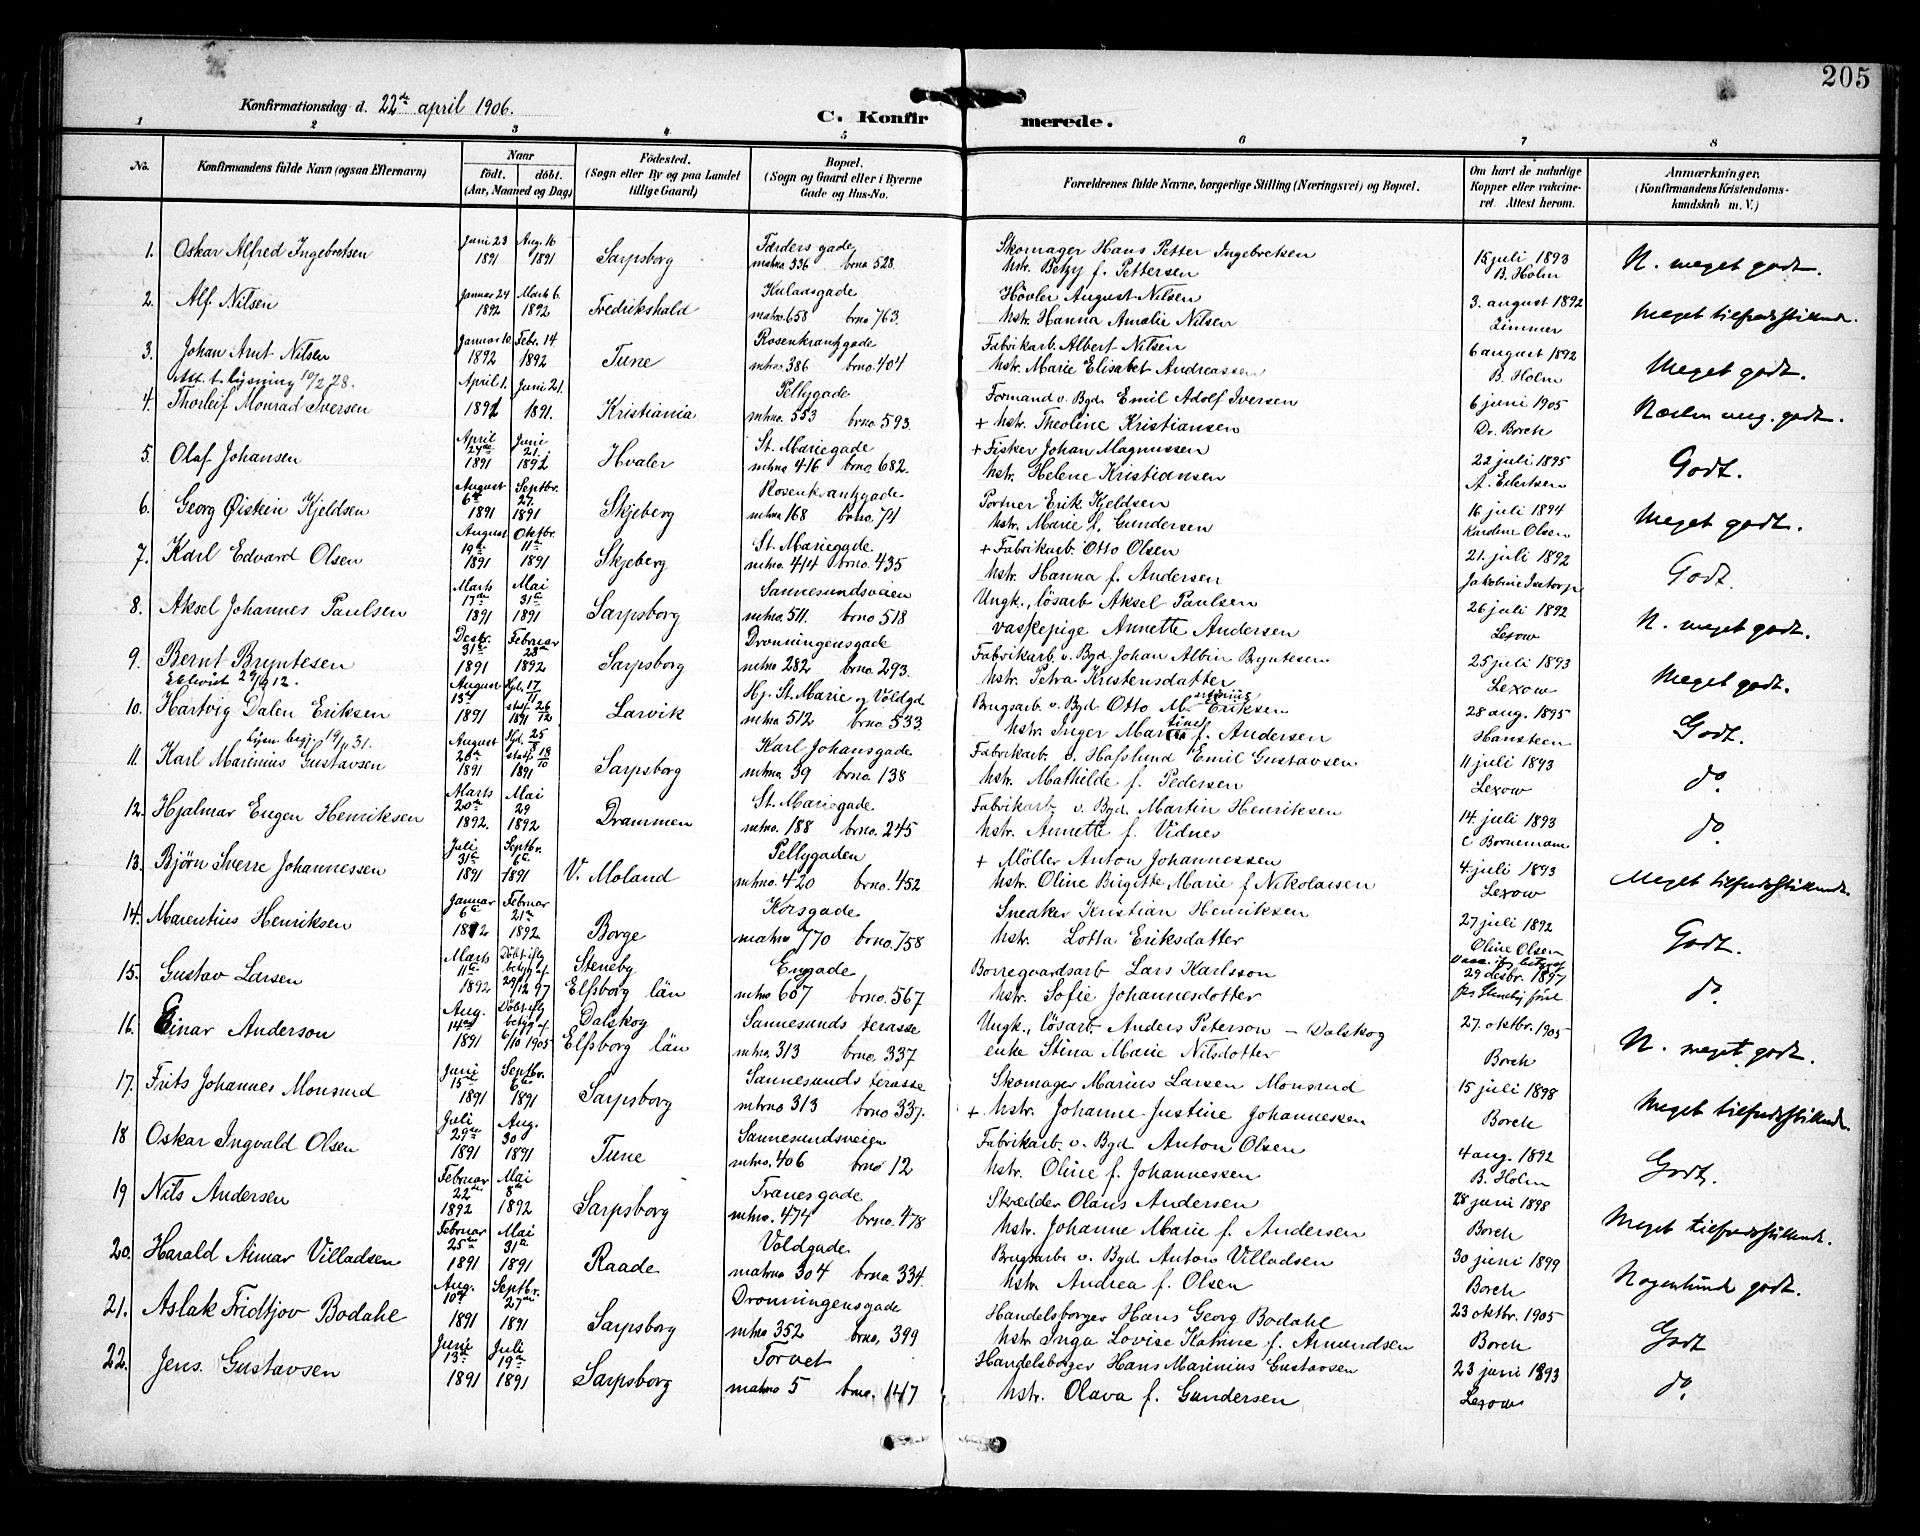 205
Konfirmationsdag d. 22de april 1906.
C. Konfirmerede.
1 2 3 4 5 6 7 8
No. Konfirmandens fulde Navn (ogsaa Efternavn) Naar födt. döbt. (Aar, Maaned og Dag) Födested. (Sogn eller By og paa Landet tillige Gaard) Bopæl. (Sogn og Gaard eller i Byerne Gade og Hus-No. Forældrenes fulde Navne, borgerlige Stilling (Næringsvei) og Bopæl. Om havt de naturlige Kopper eller vakcineret. Attest herom. Anmærkninger. (Konfirmandens Kristendomskundskab m. V.)
1. Oskar Alfred Ingebretsen Juni 23 1891 Aug. 16 1891 Sarpsborg Færders gade matrno 336 brno 528. Skomager Hans Petter Ingebretsen hstr. Betzy f. Pettersen 15 juli 1893 B. Holm N. meget godt.
2. Alf Nilsen Januar 24 1892 Marts 6. 1892 Fredrikshald Kulaasgade matrno. 658 brno 763. Hövler August Nilsen hstr. Hanna Amalie Nilsen 3. august 1892 Zimmer Meget tilfredsstillende.
3. Johan Arnt Nilsen Januar 10 1892 Febr. 14 1892 Tune Rosenkrantzgade mtrno. 386 brno. 404 Fabrikarb. Albert Nilsen hstr. Marie Elisabet Andreassen 6 august 1892 B. Holm Meget godt.
Att. t. lysning 10/2 28.
4. Thorleif Monrad Iversen April 1. 1891 Juni 21. 1891. Kristiania Pellygade mtrno. 553 brno. 593. Formand v. Bgd. Emil Adolf Iversen + hstr. Theoline Kristiansen 6 juni 1905 Dr. Borch Næsten meg. godt.
5. Olaf Johansen April 24de 1891 Juni 21. 1891 Hvaler St. Mariegade mtrno 416 brno. 682. + Fisker Johan Magnussen hstr. Helene Kristiansen 22 juli 1895 A. Eilertsen Godt.
6. Georg Øistein Kjeldsen August 6te 1891 Septbr. 27. 1891 Skjeberg Rosenkrantzgade mtrno 168 brno. 74 Portner Erik Kjeldsen hstr. Marie f. Gundersen 16 juli 1894 Karoline Olsen Meget godt.
7. Karl Edvard Olsen August 19de 1891 Oktbr. 11te 1891 Skjeberg St. Mariegade mtrno. 414 brno. 435 + Fabrikarb. Otto Olsen hstr. Hanna f. Andersen 21. juli 1892 Godt.
8. Aksel Johannes Paulsen Marts 17de 1891 Mai 31te 1891 Sarpsborg Sannesundsveien mtrno. 511. brno 518 Ungk., lösarb Aksel Paulsen vaskepige Annette Andersen 26 juli 1892 Lexow N. meget godt.
9. Bernt Bryntesen Desbr. 31te 1891 Februar 28de 1892 Sarpsborg Dronningensgade mtrno 282 brno. 293. Fabrikarb. v. Bgd. Johan Albin Byntesen hstr. Petra Kristensdatter 25 juli 1893 Lexow Meget godt.
10. Hartvig Dalen Eriksen August 13de 1891 Hjd. 17/11 stadf. 26/12 1891 Larvik Hj. St. Marie og Voldgd mtrno. 512 brno. 533 Brugsarb. v. Bgd. Otto M. Eriksen hstr. Inger Martine f. Andersen 28 aug. 1895 Hansteen Godt.
11. Karl Marinius Gustavsen August 20de 1891 Hjd. 25/8 stadf 18/10 1891 Sarpsborg Karl Johansgade mtrno 39 brno. 138 Fabrikarb. v. Hafslund Emil Gustavsen hstr. Mathilde f. Pedersen 11 juli 1893 Lexow do.
12. Hjalmar Eugen Henriksen Marts 20de 1892. Mai 29 1892 Drammen St. Mariegade mtrno. 188 brno. 245 Fabrikarb v. Bgd. Martin Henriksen hstr. Annette f. Vidnes 14. juli 1893 C Bornemann do.
13. Bjørn Sverre Johannessen Juli 31te 1891 Septbr. 6te 1891 V. Moland Pellygaden mtrno. 420 brno. 452 + Möller Anton Johannessen hstr. Oline Birgitte Marie f Nikolaisen 4. juli 1893 Lexow Meget tilfredsstillende.
14. Marentius Henriksen Januar 6te 1892 Februar 21de 1892 Borge Korsgade matrno 770 brno. 758 Snedker Kristian Henriksen hstr. Lotta Eriksdatter 27 juli 1892 Oline Olsen Godt.
15. Gustav Larsen Marts 11te 1892 Döbt iflg betyg af 29/12 97 Steneby Elfsborg län Engade mtrno 607 brno. 567 Borregaardsarb Lars Karlsson hstr. Sofie Johannesdotter Vacc. iflg betyg 29 desbr. 1897 do.
16. Einar Anderson Aug. 14de 1891 Döbt iflg betyg af 6/10 1905 Dalskog Elfsborg län Sannesunds terasse mtrno. 313 brno. 337 Ungk., lösarb Anders Peterson – Dalskog enke Stina Marie Nilsdotter 27. oktbr. 1905 Borch N. meget godt.
17. Frits Johannes Monsrud Juni 15de 1891 Septbr. 6te 1891 Sarpsborg Sannesunds terasse mtrno 313 brno 337. Skomager Marius Larsen Monsrud + hstr. Johanne Justine Johannessen 15 juli 1898 Borch Meget tilfredsstillende.
18 Oskar Ingvald Olsen Juli 29de 1891 Aug. 30 1891 Tune Sannesundsveien mtrno. 406 brno 12 Fabrikarb. v. Bgd. Anton Olsen hstr. Oline f. Johannessen 4 aug. 1892 B. Holm Godt.
19 Nils Andersen Februar 22de 1892 Mai 8de 1892 Sarpsborg Tranesgade mtrno. 474 brno. 478 Skrædder Olaus Andersen hstr. Johanne Marie f. Andersen 28 juni 1898 Borch Meget tilfredsstillende.
20. Harald Aimar Villadsen Februar 25de 1891 Mai 31te 1891 Raade Voldgade matrno 304 brno 334. Brugsarb. v. Bgd. Anton Villadsen hstr. Andrea f. Olsen 30 juni 1899 Borch Nogenlunde godt.
21. Aslak Fridtjov Bodahl Aug. 10de 1891 Septbr. 27de 1891 Sarpsborg Dronningensgade mtrno 352 brno, 399 Handelsborger Hans Georg Bodahl hstr. Inga Lovise Katrine f. Amundsen 23 oktbr. 1905 Borch Godt
22. Jens Gustavsen Juni 13de 1891 Juli 19de 1891 Sarpsborg Torvet matrno 5 brno. 147 Handelsborger Hans Marinius Gustavsen hstr. Olava f. Gundersen 23 juni 1893 Lexow do.